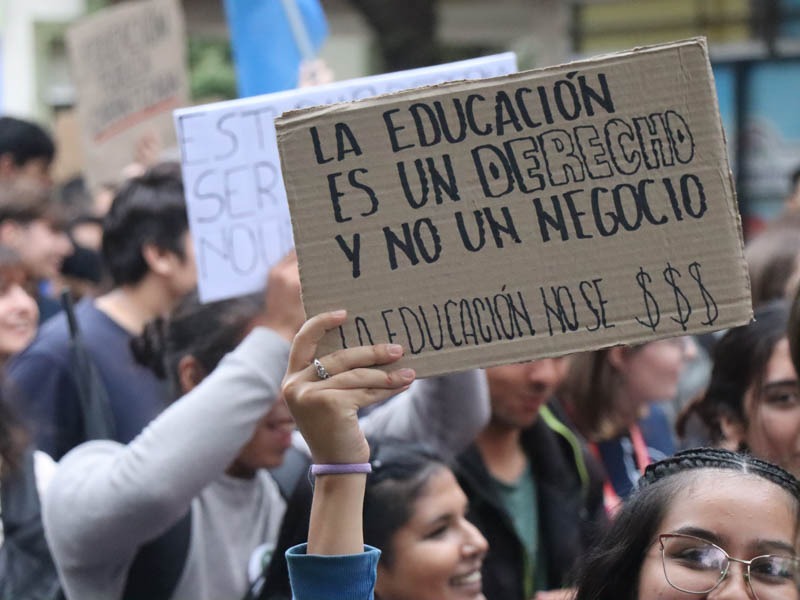 LA EDUCACIÓN
ES UN DERECHO
Y NO UN NEGOCIO
LA EDUCACIÓN NO SE $$$
EST
SER
NO
EDUCACIÓN